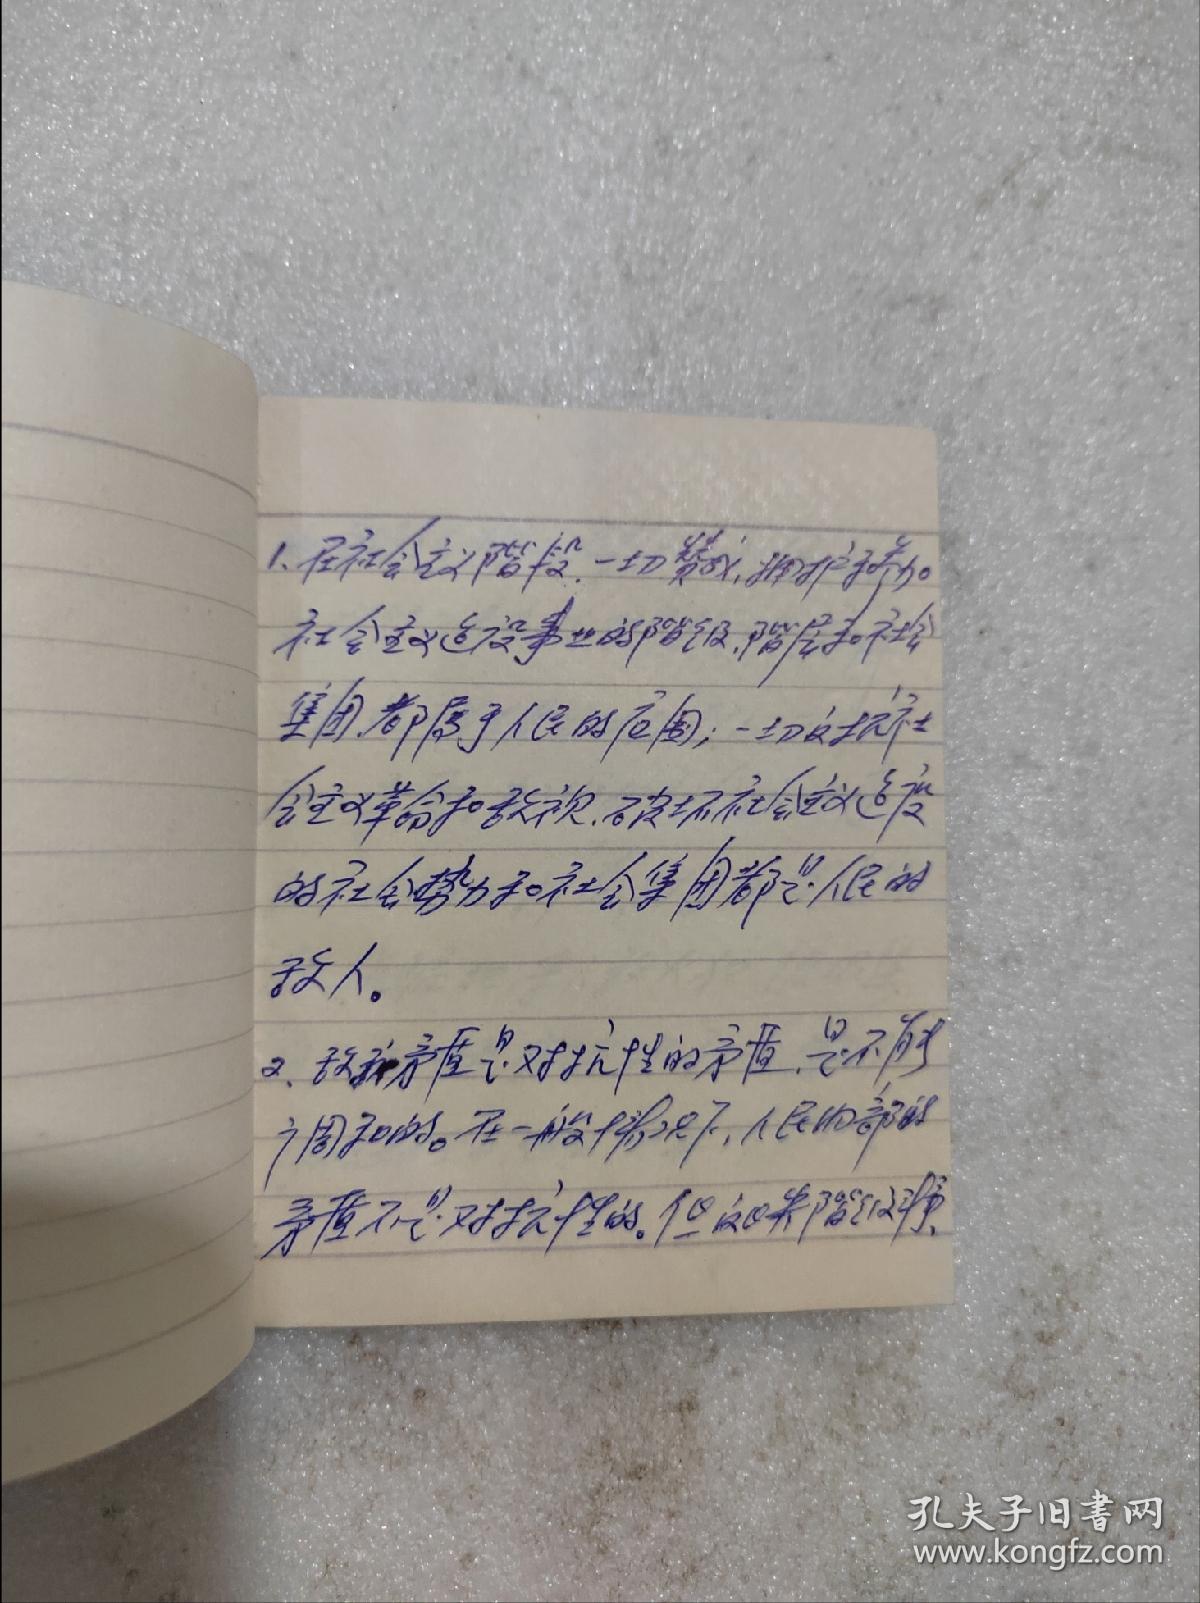 1、在社会主义阶段、一切赞成、拥护和参加
社会主义建设事业的阶级、阶层和社会
集团,都属于人民的范围；一切反抗社
会主义革命和敌视、破坏社会主义建设
的社会势力和社会集团都是人民的
敌人。
2、敌我矛盾是对抗性的矛盾、是不能
调和的。在一般情况下,人民内部的
矛盾不是对抗性的。但
孔夫子旧书网
www.kongfz.com